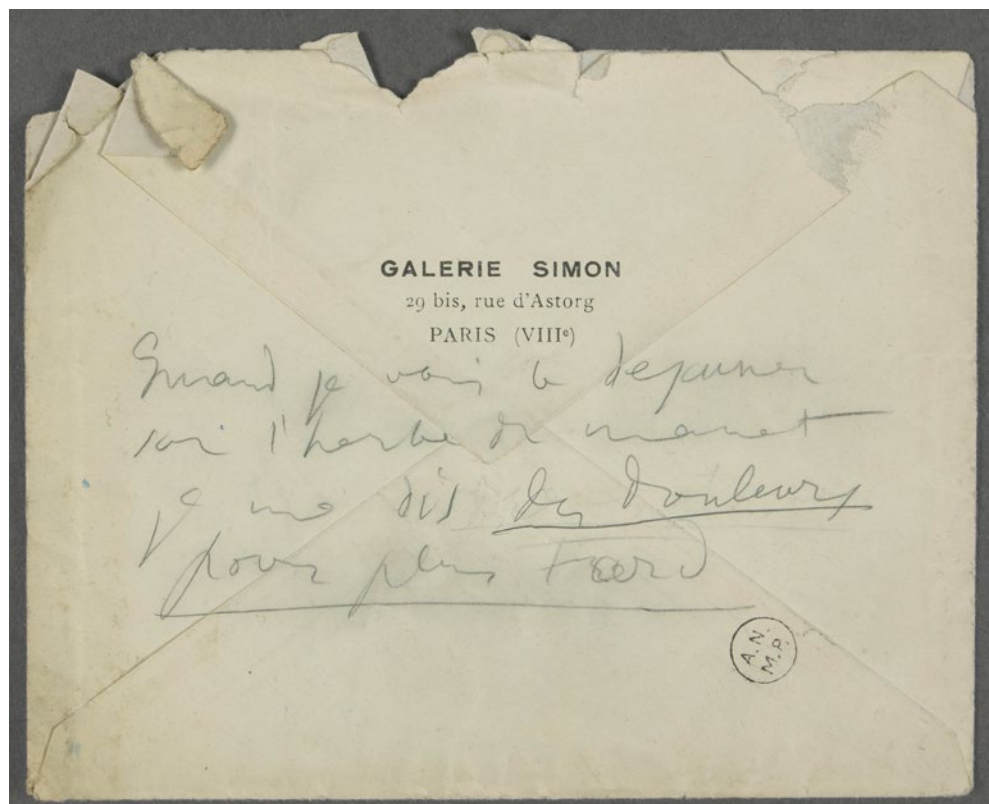 GALERIE SIMON
29 bis, rue d'Astorg
PARIS (VIIIe)
Quand je vois le dejeuner
sur l'herbe de manet
je me dis des douleurs
pour plus tard
A.N.
M.P.